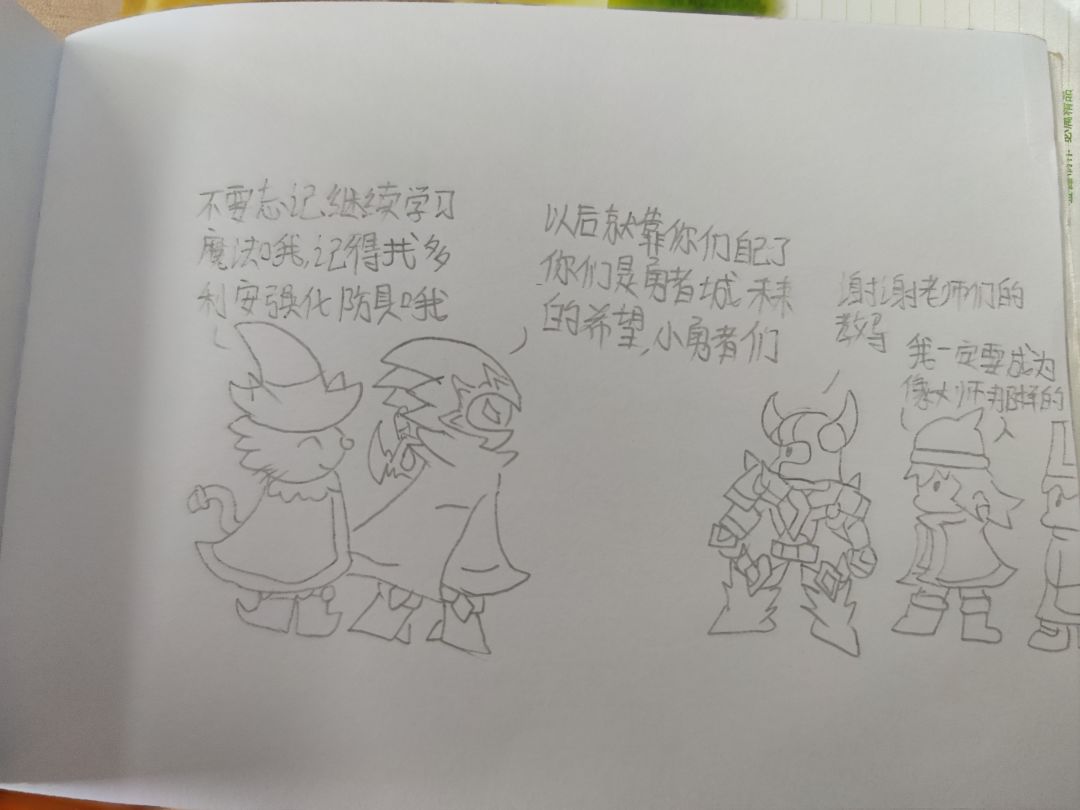 不要忘记继续学习
魔法哦,记得找多
利安强化防具哦
以后就靠你们自己了
你们是勇者城未来
的希望,小勇者们
谢谢老师们的
教导
我一定要成为
像大师那样的
人